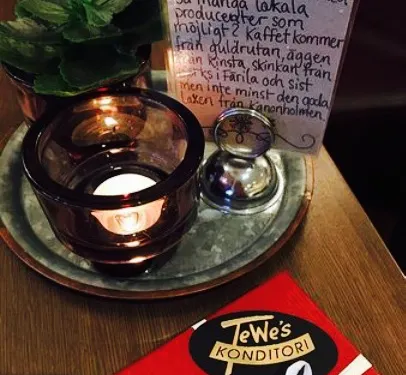 så många lokala
producenter som
möjligt? Kaffet kommer
från guldrutan, äggen
från Kinsta, skinkan från
i Färila och sist
men inte minst den goda
Laxen från Kanonholmen.
TeWe's
KONDITORI